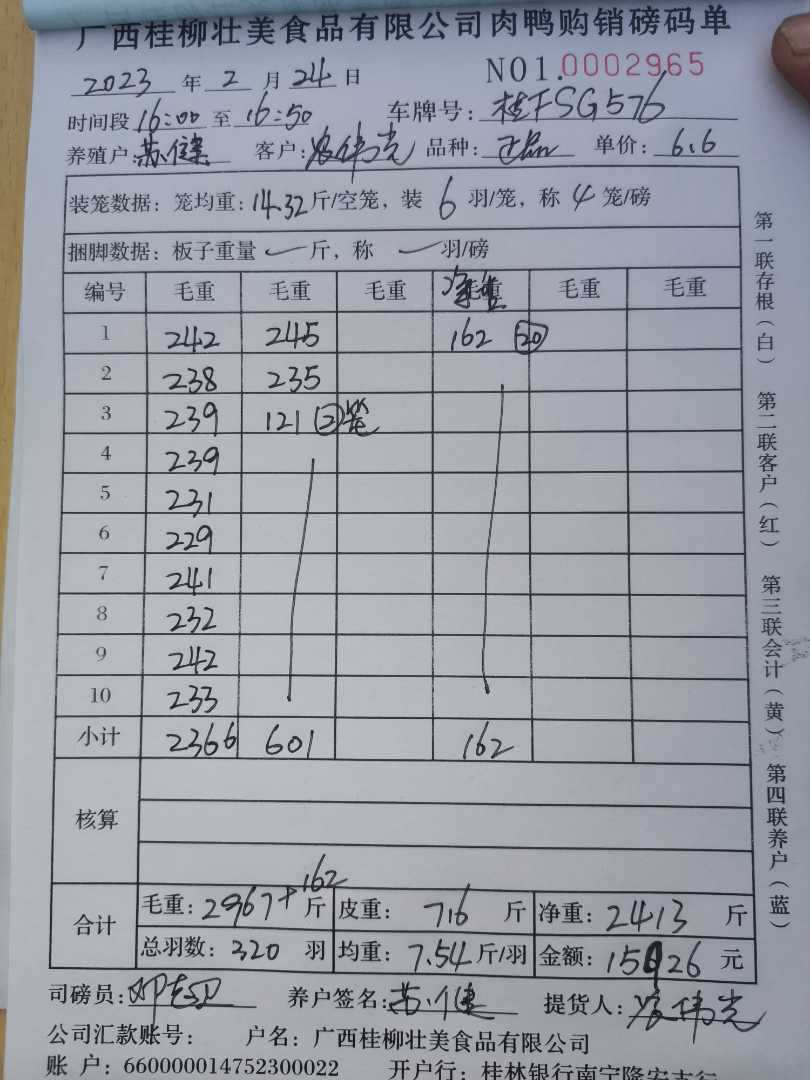 广西桂柳壮美食品有限公司肉鸭购销磅码单
2023 年 2 月 24 日 NO1.0002965
时间段 16:00 至 16:50 车牌号: 桂FSG576
养殖户: 苏健 客户: 伟光 品种: 正品 单价: 6.6
装笼数据: 笼均重: 14.32 斤/空笼, 装 6 羽/笼, 称 4 笼/磅
捆脚数据: 板子重量 — 斤, 称 — 羽/磅
编号 毛重 毛重 毛重 净重 毛重 毛重
1 242 245 162 (20)
2 238 235
3 239 121 (2)笼
4 239
5 231
6 229
7 241
8 232
9 242
10 233
小计 2366 601 162
核算
合计 毛重: 2967+162 斤 皮重: 716 斤 净重: 2413 斤
总羽数: 320 羽 均重: 7.54 斤/羽 金额: 15926 元
司磅员: 养户签名: 苏健 提货人: 伟光
公司汇款账号: 户名: 广西桂柳壮美食品有限公司
账 户: 660000014752300022 开户行: 桂林银行南宁隆安支行
第一联存根(白) 第二联客户(红) 第三联会计(黄) 第四联养户(蓝)